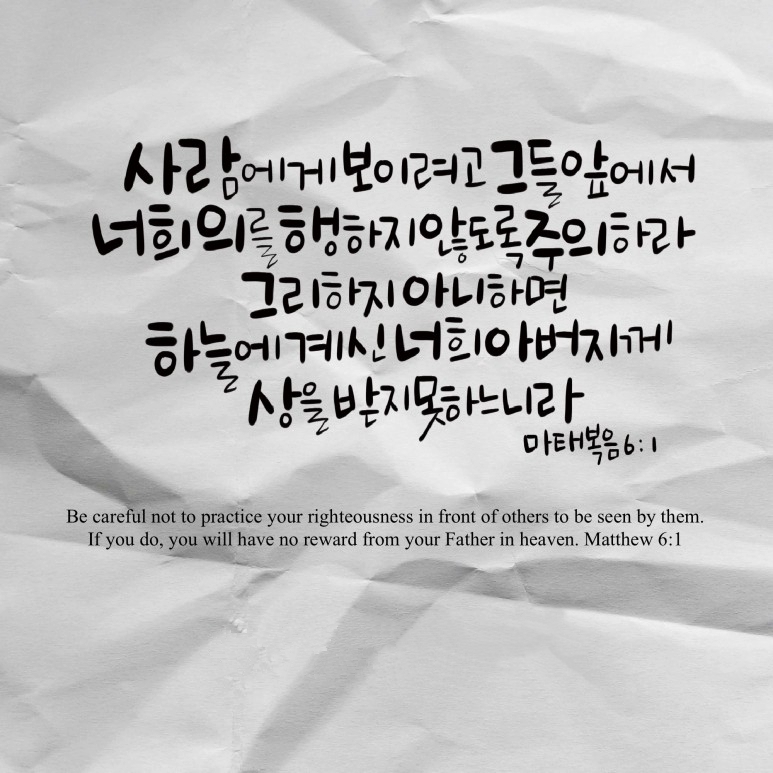 사람에게 보이려고 그들 앞에서
너희 의를 행하지 않도록 주의하라
그리하지 아니하면
하늘에 계신 너희 아버지께
상을 받지 못하느니라
마태복음 6:1
Be careful not to practice your righteousness in front of others to be seen by them.
If you do, you will have no reward from your Father in heaven. Matthew 6:1